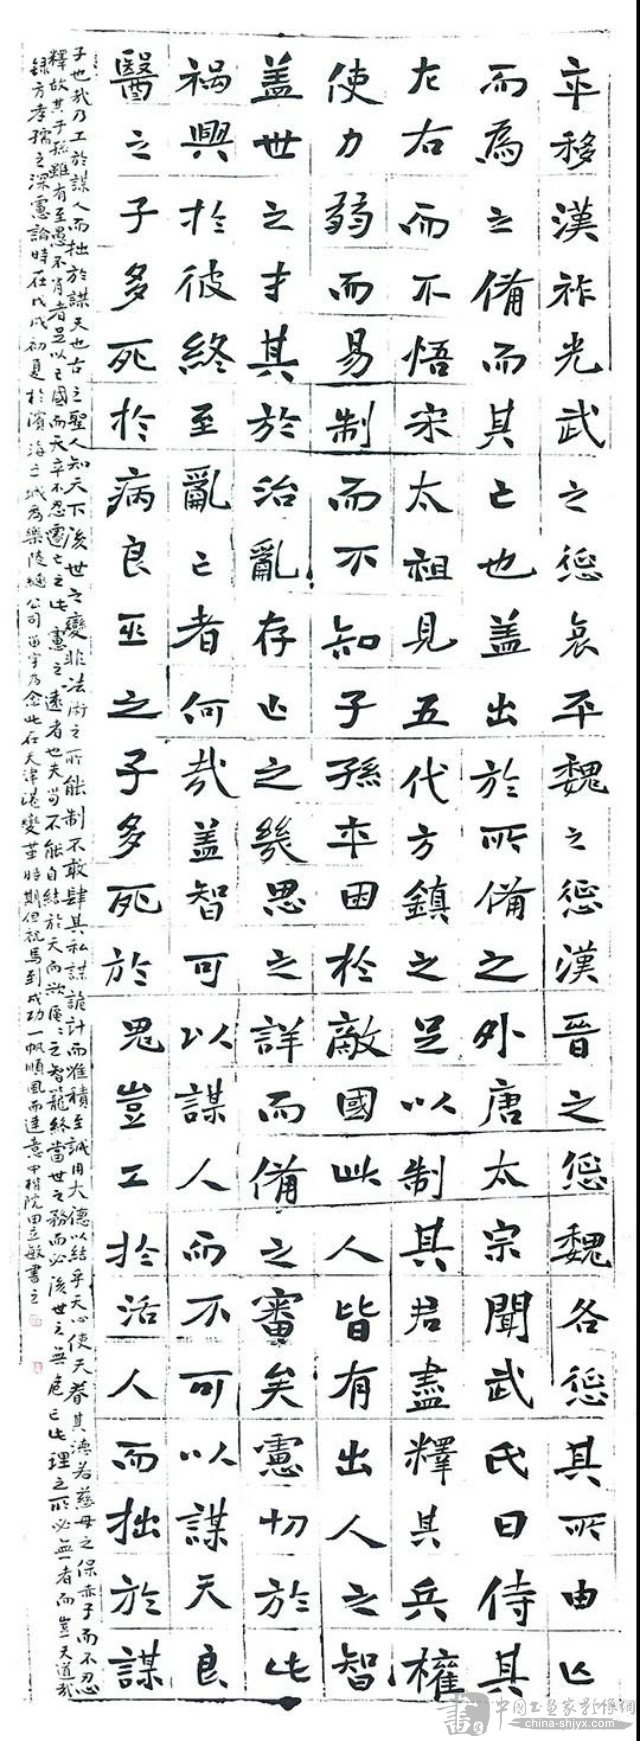 卒移漢祚光武之懲哀平魏之懲漢晉之懲魏各懲其所由亡
而為之備而其亡也蓋出於所備之外唐太宗聞武氏曰侍其
左右而不悟宋太祖見五代方鎮之足以制其君盡釋其兵權
使力弱而易制而不知子孫卒困於敵國此人皆有出人之智
蓋世之才其於治亂存亡之幾思之詳而備之審矣慮切於此
禍興於彼終至亂亡者何哉蓋智可以謀人而不可以謀天良
醫之子多死於病良巫之子多死於鬼豈工於活人而拙於謀
子也哉乃工於謀人而拙於謀天也古之聖人知天下後世之變非法術之所能制不敢肆其私謀詭計而唯積至誠用大德以結乎天心使天眷其德若慈母之保赤子而不忍
釋故其子孫雖有至愚不肖者足以亡國而天卒不忍遽亡之此慮之遠者也夫苟不能自結於天而欲區〻之智籠終當世之務而必後世之無危亡此理之所必無者而豈天道哉
錄方孝孺之深慮論時在戊戌初夏於濱海之城為樂陵總公司留字乃念此在天津港變革時期但祝馬到成功一帆順風而達意中楷院田立敏書之
中國書畫家影像網
china-shjyx.com